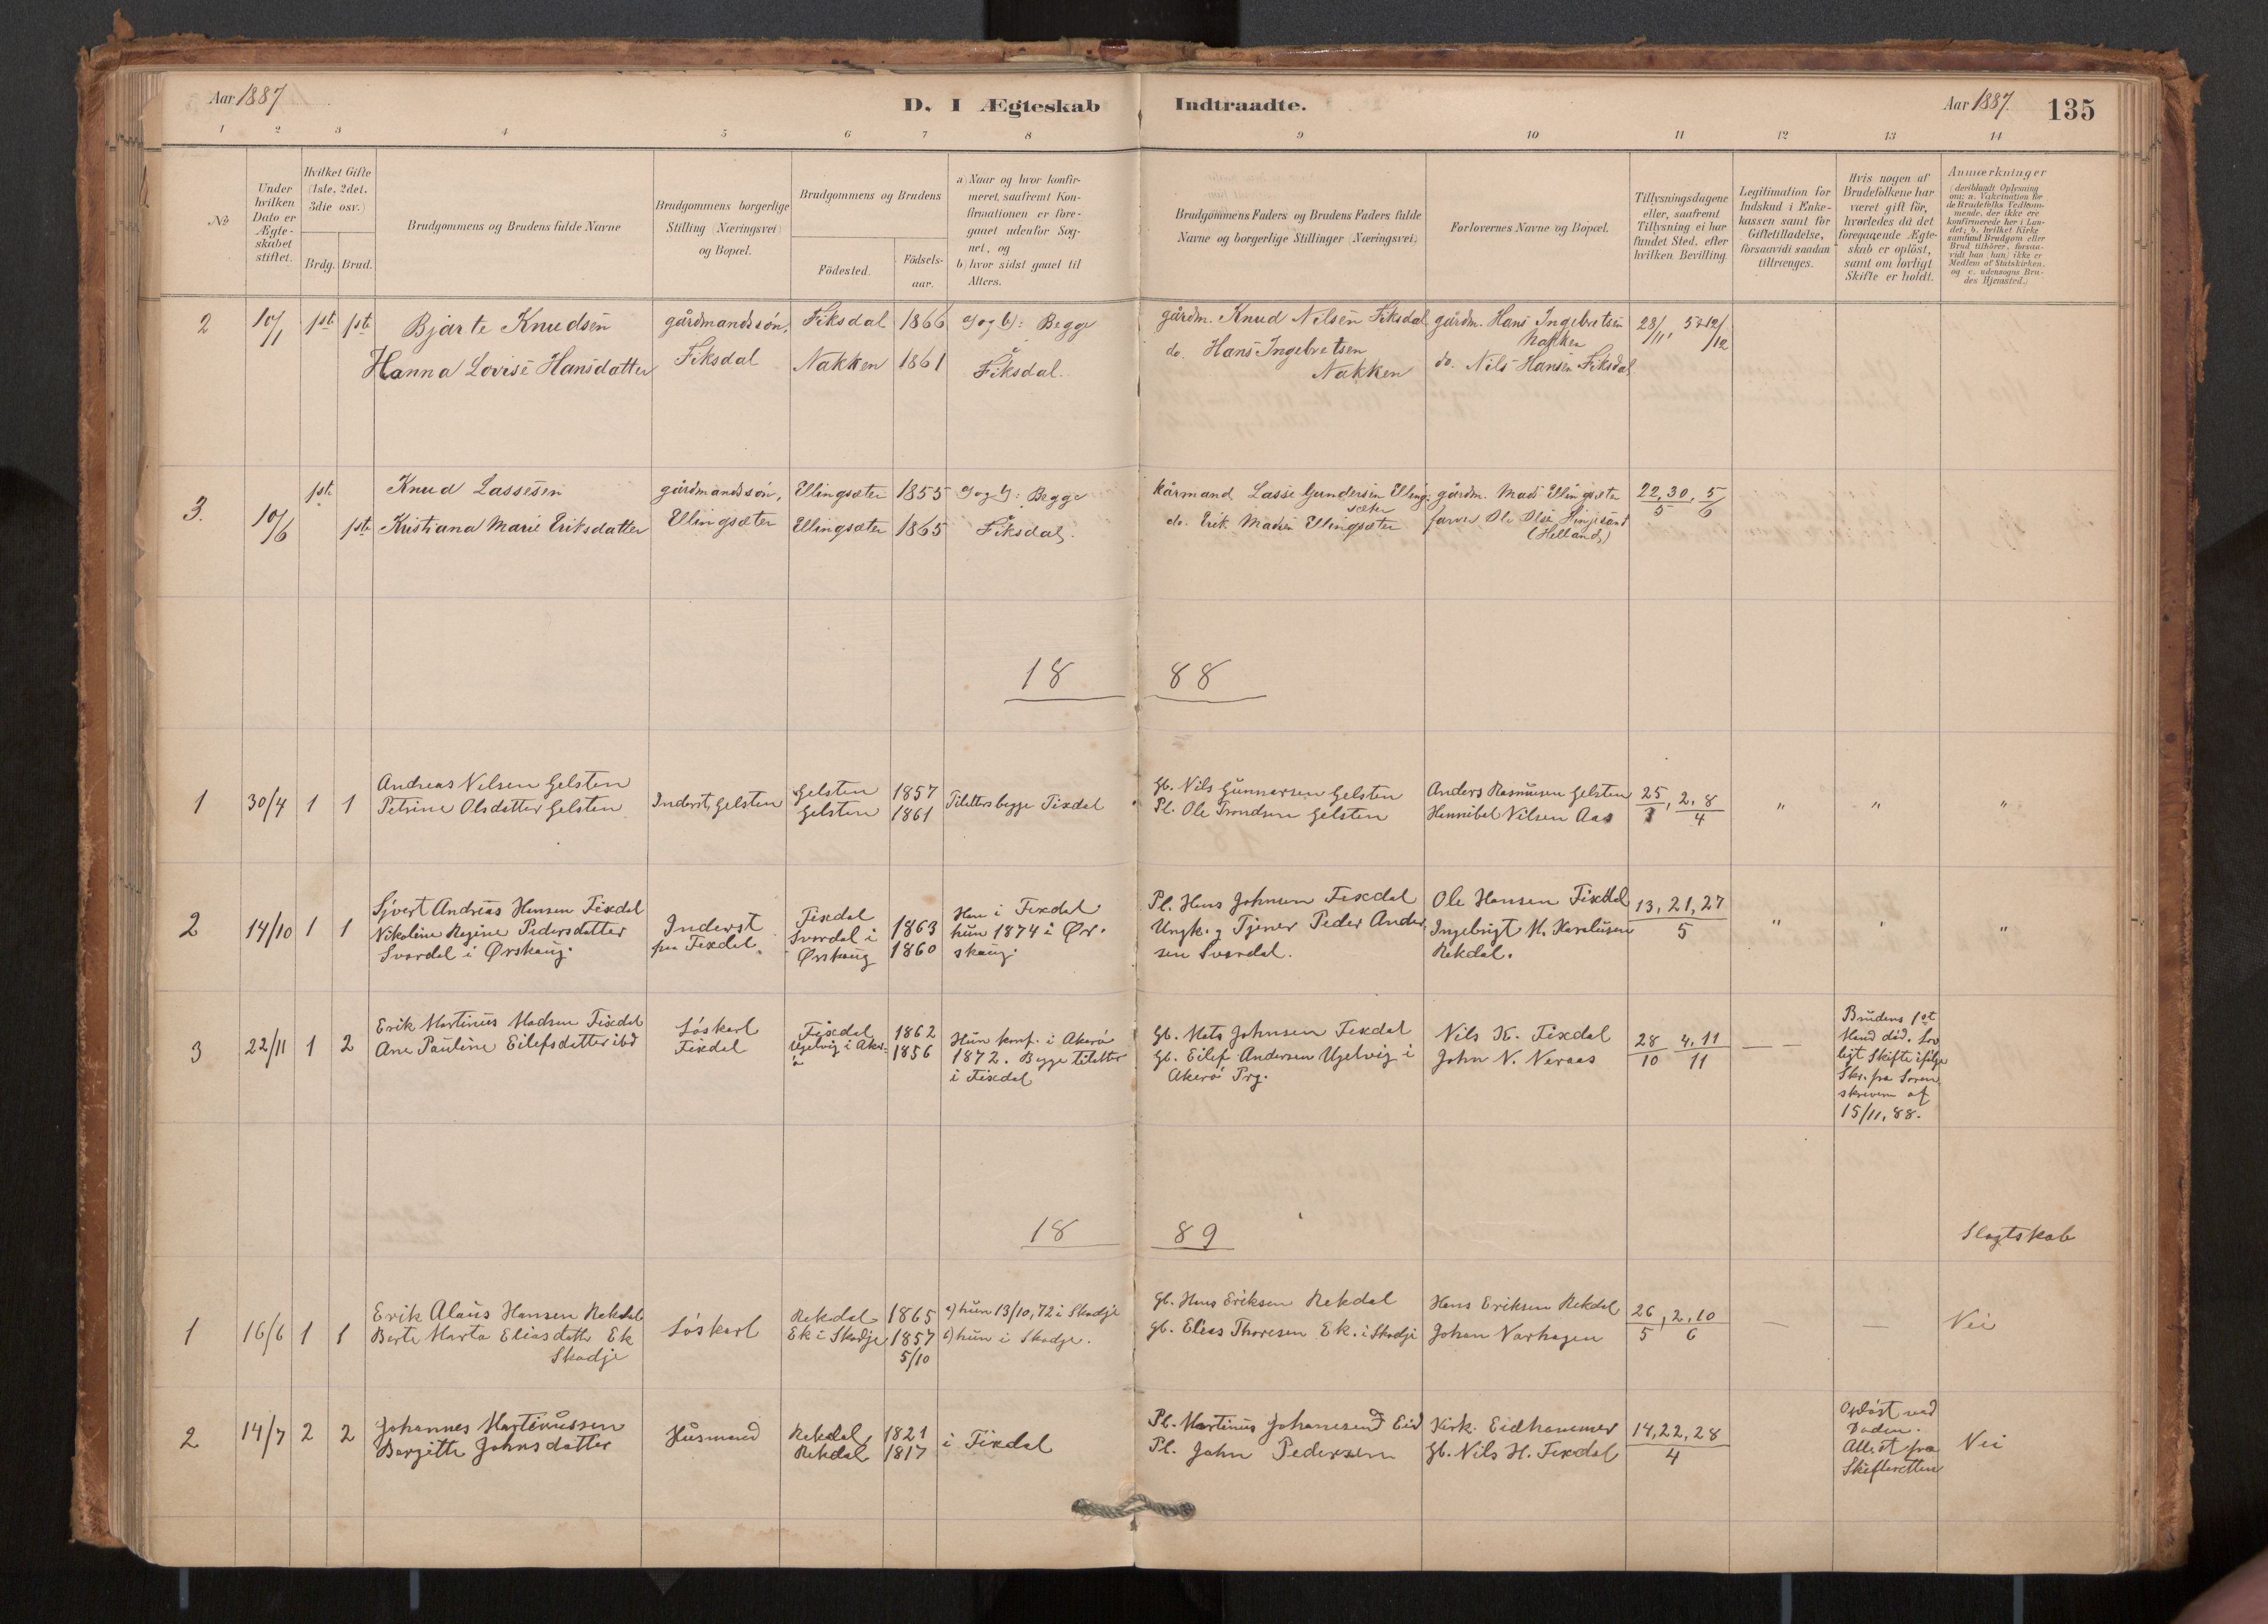 Aar 1887
D. I Ægteskab Indtraadte.
Aar 1887.
135
1 2 3 4 5 6 7 8 9 10 11 12 13 14
No
Under hvilken Dato er Ægteskabet stiftet.
Hvilket Gifte (1ste, 2det, 3die osv.)
Brdg. Brud.
Brudgommens og Brudens fulde Navne
Brudgommens borgerlige Stilling (Næringsvei) og Bopæl.
Brudgommens og Brudens
Födested.
Födsels-aar.
a) Naar og hvor konfir-
meret, saafremt Kon-
firmationen er fore-
gaaet udenfor Sog-
net, og
b) hvor sidst gaaet til
Alters.
Brudgommens Faders og Brudens Faders fulde
Navne og borgerlige Stillinger (Næringsvei)
Forlovernes Navne og Bopæl.
Tillysningsdagene
eller, saafremt
Tillysning ei har
fundet Sted, efter
hvilken Bevilling.
Legitimation for
Indskud i Enke-
kassen samt for
Giftetilladelse,
forsaavidt saadan
tiltrænges.
Hvis nogen af
Brudefolkene har
været gift för,
hvorledes da det
foregaaende Ægte-
skab er oplöst,
samt om lovligt
Skifte er holdt.
Anmærkninger
(deriblandt Oplysning
om: a. Vakcination for
de Brudefolks Vedkom-
mende, der ikke ere
konfirmerede her i Lan-
det; b. hvilket Kirke-
samfund Brudgom eller
Brud tilhörer, forsaa-
vidt han (hun) ikke er
Medlem af Statskirken,
og c. udensogns Bru-
des Hjemsted.)
2 10/1 1ste 1ste Bjarte Knudsen gårdmandssøn, Fiksdal 1866 a) og b): Begge gårdm. Knud Nilsen Fiksdal gårdm. Hans Ingebretsen Nakken 28/11, 5 & 12/12
Hanna Lovise Hansdatter Fiksdal Nakken 1861 å Fiksdal. do. Hans Ingebretsen Nakken do. Nils Hansen Fiksdal
3. 10/6 1ste Knud Lassesen gårdmandssøn, Ellingsæter 1855 a) og b): Begge kårmand Lasse Gundersen Ellingsæter gårdm. Mads Ellingsæter 22, 30/5, 5/6
1ste Kristiana Marie Eriksdatter Ellingsæter Ellingsæter 1865 å Fiksdal. do. Erik Madsen Ellingsæter Ole Olsen (Helland)
18 88
1 30/4 1 1 Andreas Nilsen Gelsten Inderst, Gelsten Gelsten 1857 Tilalters begge Fixdal Gb. Nils Gunnersen Gelsten Anders Rasmusen Gelsten 25/3, 2, 8/4 " " "
Petrine Olsdatter Gelsten Gelsten 1861 Pl. Ole Trondsen Gelsten Hennibel Nilsen Aas
2 14/10 1 1 Sjvert Andreas Hansen Fixdal Inderst Fixdal 1863 Han i Fixdal Pl. Hans Johnsen Fixdal Ole Hansen Fixdal 13, 21, 27/5 " " "
Nikoline Regine Pedersdatter paa Fixdal. Svardal i 1860 hun 1874 i Ør- Ungk. & Tjener Peder Ander- Ingebrigt M. Karolusen
Svardal i Ørskaug. Ørskaug skaug. sen Svardal. Rekdal.
3 22/11 1 2 Erik Martinus Madsen Fixdal Löskarl Fixdal 1862 Hun konf. i Akerö Gb. Mats Johnsen Fixdal Nils K. Fixdal 28/10 4, 11/11 — —
Ane Pauline Eilefsdatter ibd Fixdal Ugelvig i Aker- 1856 1872. Begge tilalter Gb. Eilef Andersen Ugelvig i John N. Neraas
ö i Fixdal Akerö Prg.
Brudens 1st
Mand död. Lov-
ligt Skifte ifölge
Skr. fra Soren-
skriveren af
15/11, 88.
18 89
Slegtskab
1 16/6 1 1 Erik Alaus Hansen Rekdal Löskarl Rekdal 1865 a) hun 13/10, 72 i Skodje Gb. Hans Eriksen Rekdal Hans Eriksen Rekdal 26/5, 2, 10/6 — — Nei
Berte Marta Eliasdatter Ek Ek i Skodje 1857 b) hun i Skodje. Gb. Elias Thoresen Ek. i Skodje Johan Varhagen
Skodje 5/10
2 14/7 2 2 Johannes Martinussen Husmand Rekdal, 1821 i Fixdal Pl. Martinus Johanesen Eid Kirk. Eidhammer 14, 22, 28/4 Nei
Bergitte Johnsdatter Rekdal 1817 Pl. John Pedersen Gb. Nils H. Fixdal
Oplöst ved
Döden.
Attest fra
Skifteretten